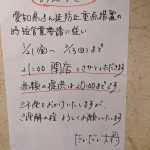 愛知県まん延防止重点措置の
時短営業要請に従い
1/21(金)〜2/13(日)まで
21:00 閉店とさせていただきます
酒類の提供は20:00までです
ご不便をおかけいたしますが、
ご理解の程 よろしくお願いいたします